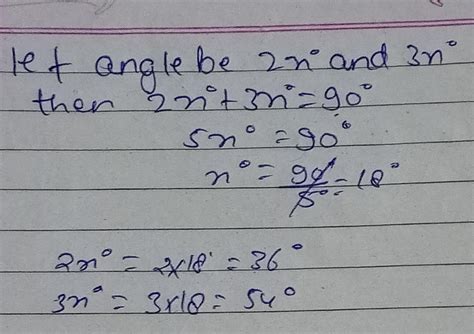 let angle be 2x° and 3x°
then 2x°+3x°=90°
5x°=90°
x°=90/5°=18°
2x°=2×18=36°
3x°=3×18=54°